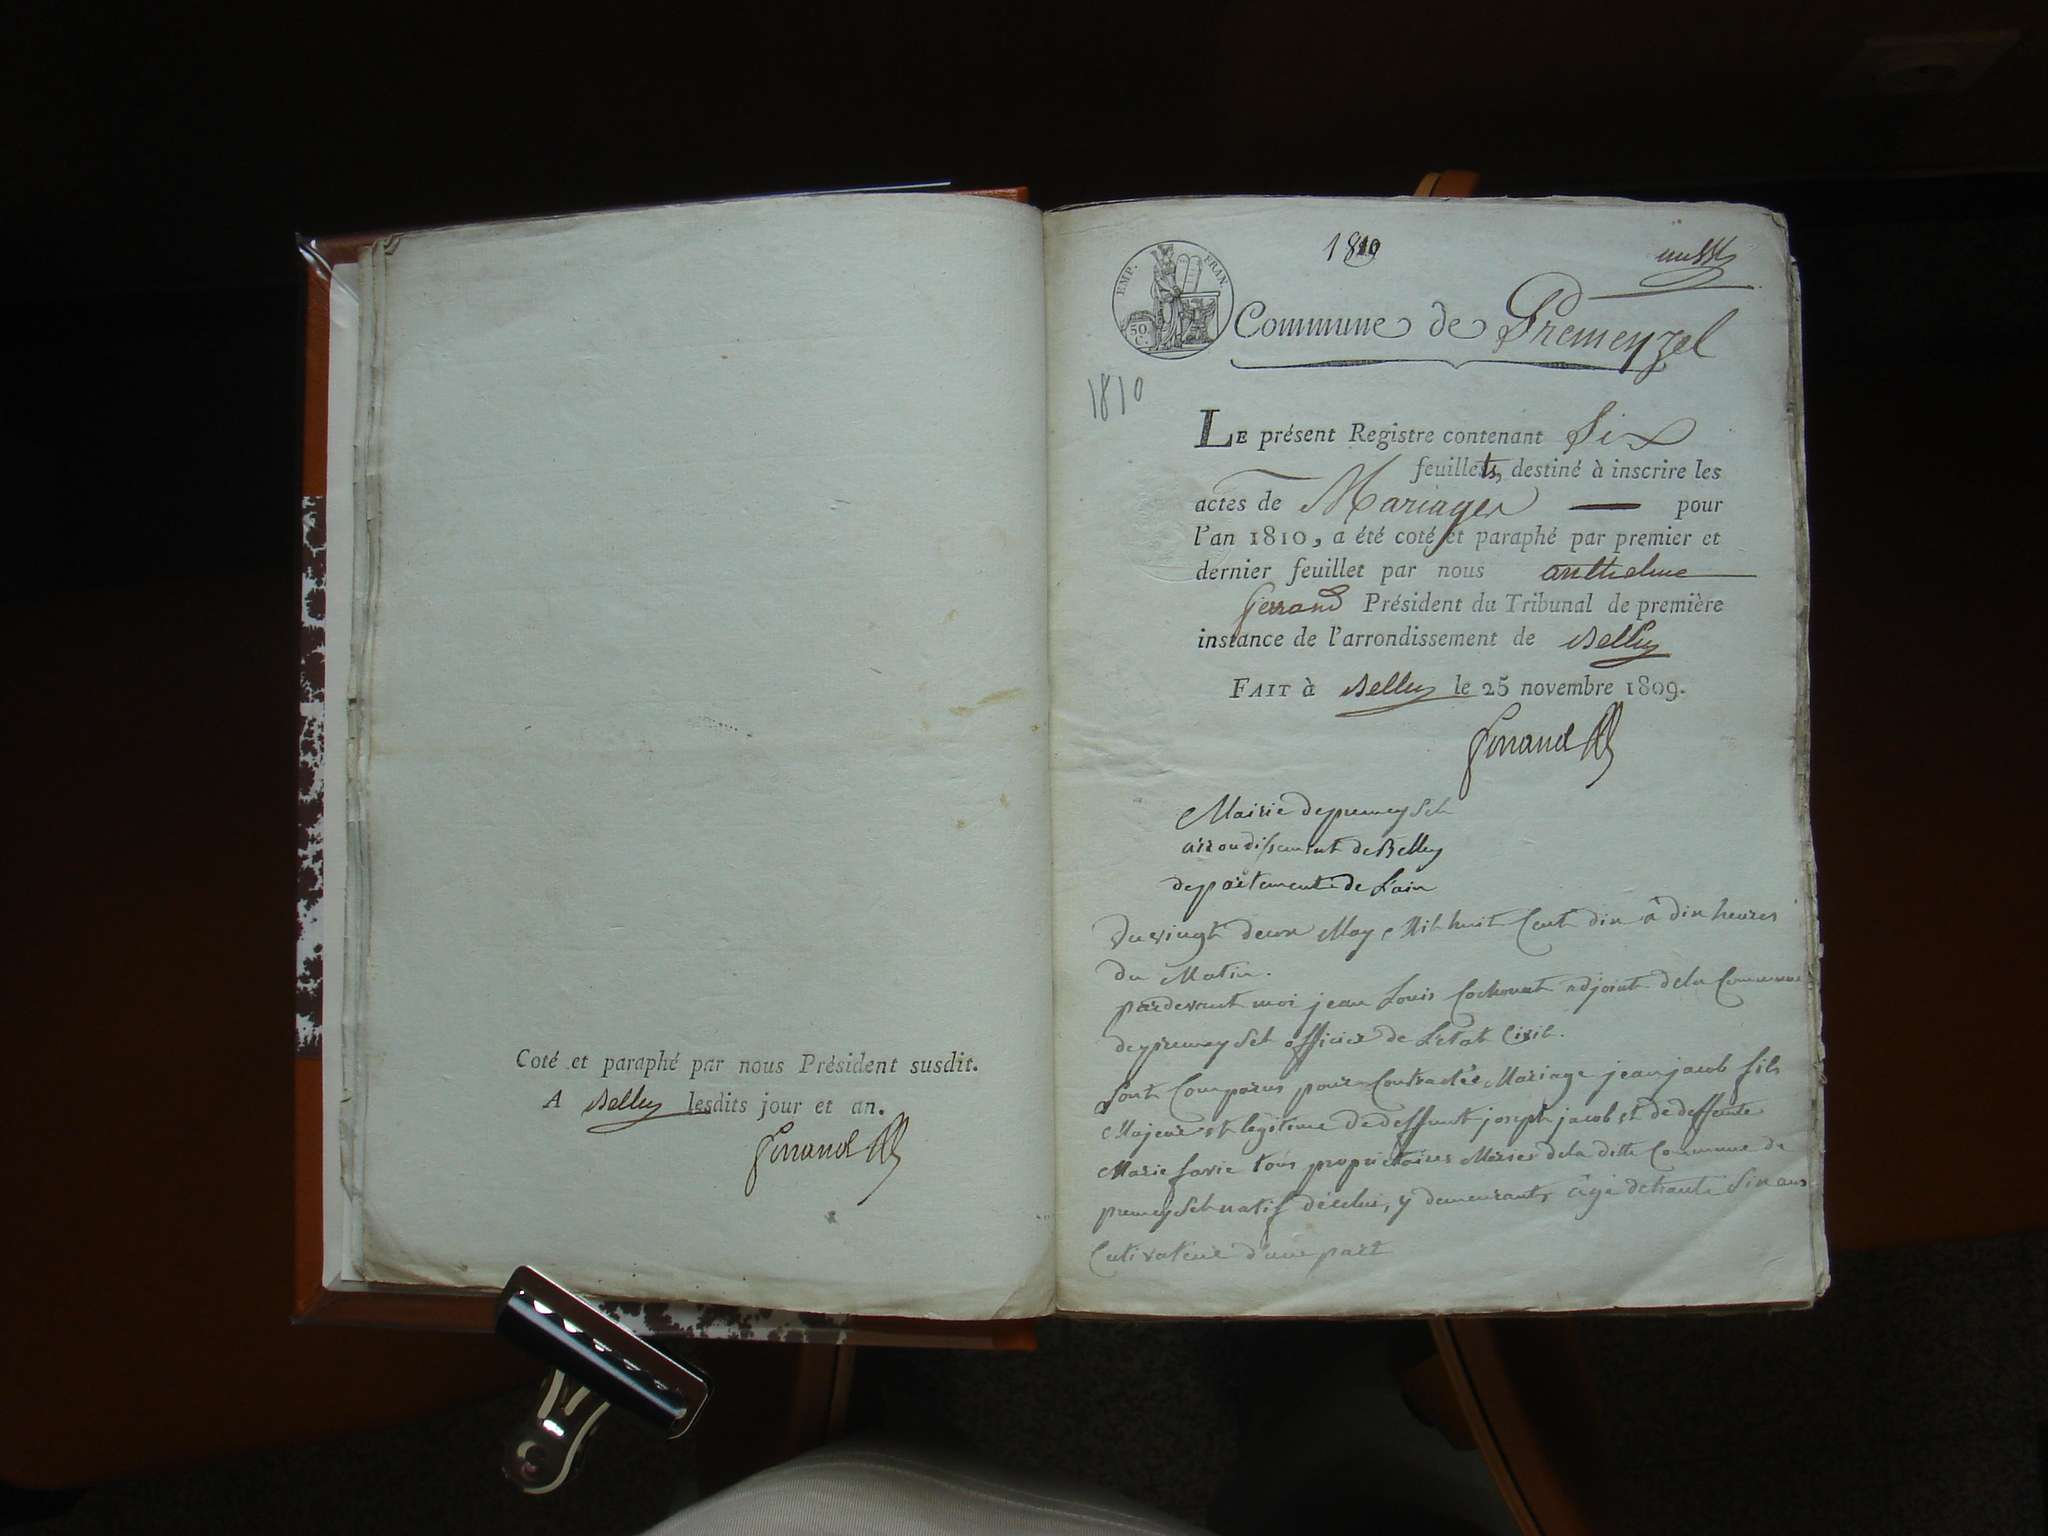 Coté et paraphé par nous Président susdit.
A Belley lesdits jour et an.
Ferrand
1810
EMP. FRAN.
50 C.
Commune de Premeyzel
1810
LE présent Registre contenant Six
feuillets, destiné à inscrire les
actes de Mariages — pour
l'an 1810, a été coté et paraphé par premier et
dernier feuillet par nous anthelme
ferrand Président du Tribunal de première
instance de l'arrondissement de Belley
FAIT à Belley le 25 novembre 1809.
Ferrand
Mairie de premeysel
arrondissement de Belley
departement de L'ain
Du vingt deux May Mil huit Cent dix à dix heures
du Matin.
pardevant moi jean Louis adjoint de la Commune
de premeysel officier de L'etat Civil.
Sont Comparus pour Contracter Mariage jean jacob fils
Majeur et legitime de deffunt joseph jacob et de deffunte
Marie favre tous propriétaires de la ditte Commune de
premeysel natif d'icelui, y demeurant, âgé de trante Six ans
Cultivateur d'une part